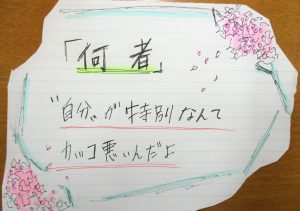 「何者」
"自分"が特別なんて
カッコ悪いんだよ